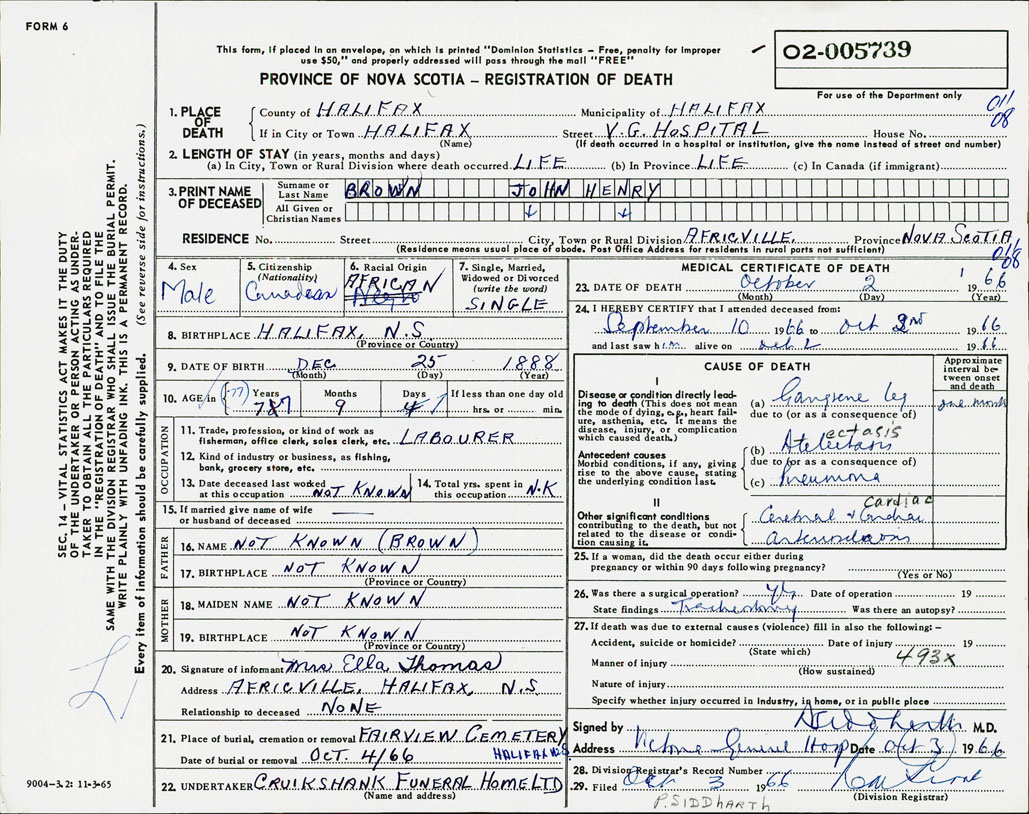 FORM 6
This form, if placed in an envelope, on which is printed "Dominion Statistics - Free, penalty for improper
use $50," and properly addressed will pass through the mail "FREE"
02-005739
PROVINCE OF NOVA SCOTIA - REGISTRATION OF DEATH
For use of the Department only
011
08
1. PLACE OF DEATH
County of HALIFAX Municipality of HALIFAX
If in City or Town HALIFAX Street V.G. HOSPITAL House No.
(Name) (If death occurred in a hospital or institution, give the name instead of street and number)
2. LENGTH OF STAY (in years, months and days)
(a) In City, Town or Rural Division where death occurred LIFE (b) In Province LIFE (c) In Canada (if immigrant)
3. PRINT NAME OF DECEASED
Surname or Last Name BROWN JOHN HENRY
All Given or Christian Names
RESIDENCE No. Street City, Town or Rural Division AFRICVILLE, Province NOVA SCOTIA
(Residence means usual place of abode. Post Office Address for residents in rural parts not sufficient)
011
08
4. Sex
Male
5. Citizenship
(Nationality)
Canadian
6. Racial Origin
AFRICAN
Negro
7. Single, Married,
Widowed or Divorced
(write the word)
SINGLE
8. BIRTHPLACE HALIFAX, N.S.
(Province or Country)
9. DATE OF BIRTH DEC 25 1888
(Month) (Day) (Year)
10. AGE in Years Months Days If less than one day old
(77) 9 7 hrs. or min.
OCCUPATION
11. Trade, profession, or kind of work as
fisherman, office clerk, sales clerk, etc. LABOURER
12. Kind of industry or business, as fishing,
bank, grocery store, etc.
13. Date deceased last worked
at this occupation NOT KNOWN
14. Total yrs. spent in
this occupation N.K
15. If married give name of wife
or husband of deceased
FATHER
16. NAME NOT KNOWN (BROWN)
17. BIRTHPLACE NOT KNOWN
(Province or Country)
MOTHER
18. MAIDEN NAME NOT KNOWN
19. BIRTHPLACE NOT KNOWN
(Province or Country)
20. Signature of informant Mrs Ella Thomas
Address AFRICVILLE, HALIFAX, N.S
Relationship to deceased NONE
21. Place of burial, cremation or removal FAIRVIEW CEMETERY
Date of burial or removal OCT. 4/66 HALIFAX N.S
22. UNDERTAKER CRUIKSHANK FUNERAL HOME LTD
(Name and address)
MEDICAL CERTIFICATE OF DEATH
23. DATE OF DEATH October 2 1966
(Month) (Day) (Year)
24. I HEREBY CERTIFY that I attended deceased from:
September 10 1966 to Oct 2nd 1966
and last saw him alive on Oct 2 1966
CAUSE OF DEATH
Approximate
interval be-
tween onset
and death
I
Disease or condition directly lead-
ing to death (This does not mean
the mode of dying, e.g., heart fail-
ure, asthenia, etc. It means the
disease, injury, or complication
which caused death.)
(a) Gangrene leg one month
due to (or as a consequence of)
ectasis
(b) Atelectasis
due to (or as a consequence of)
(c) Pneumona
Antecedent causes
Morbid conditions, if any, giving
rise to the above cause, stating
the underlying condition last.
II
Other significant conditions
contributing to the death, but not
related to the disease or condi-
tion causing it.
Cardiac
Cerebral & Cardiac
25. If a woman, did the death occur either during
pregnancy or within 90 days following pregnancy?
(Yes or No)
26. Was there a surgical operation? Yes Date of operation 19
State findings Tracheotomy Was there an autopsy?
27. If death was due to external causes (violence) fill in also the following:-
Accident, suicide or homicide? Date of injury 19
(State which)
493x
Manner of injury
(How sustained)
Nature of injury
Specify whether injury occurred in industry, in home, or in public place
Signed by M.D.
Address Victoria General Hosp Date Oct 3 1966
28. Division Registrar's Record Number
29. Filed Oct 3 1966
(Division Registrar)
P. SIDDHARTH
SEC. 14 - VITAL STATISTICS ACT MAKES IT THE DUTY
OF THE UNDERTAKER OR PERSON ACTING AS UNDER-
TAKER TO OBTAIN ALL THE PARTICULARS REQUIRED
IN THE "REGISTRATION OF DEATH" AND TO FILE THE
SAME WITH THE DIVISION REGISTRAR WHO SHALL ISSUE THE BURIAL PERMIT.
WRITE PLAINLY WITH UNFADING INK. THIS IS A PERMANENT RECORD.
Every item of information should be carefully supplied. (See reverse side for instructions.)
9004-3.2: 11-3-65